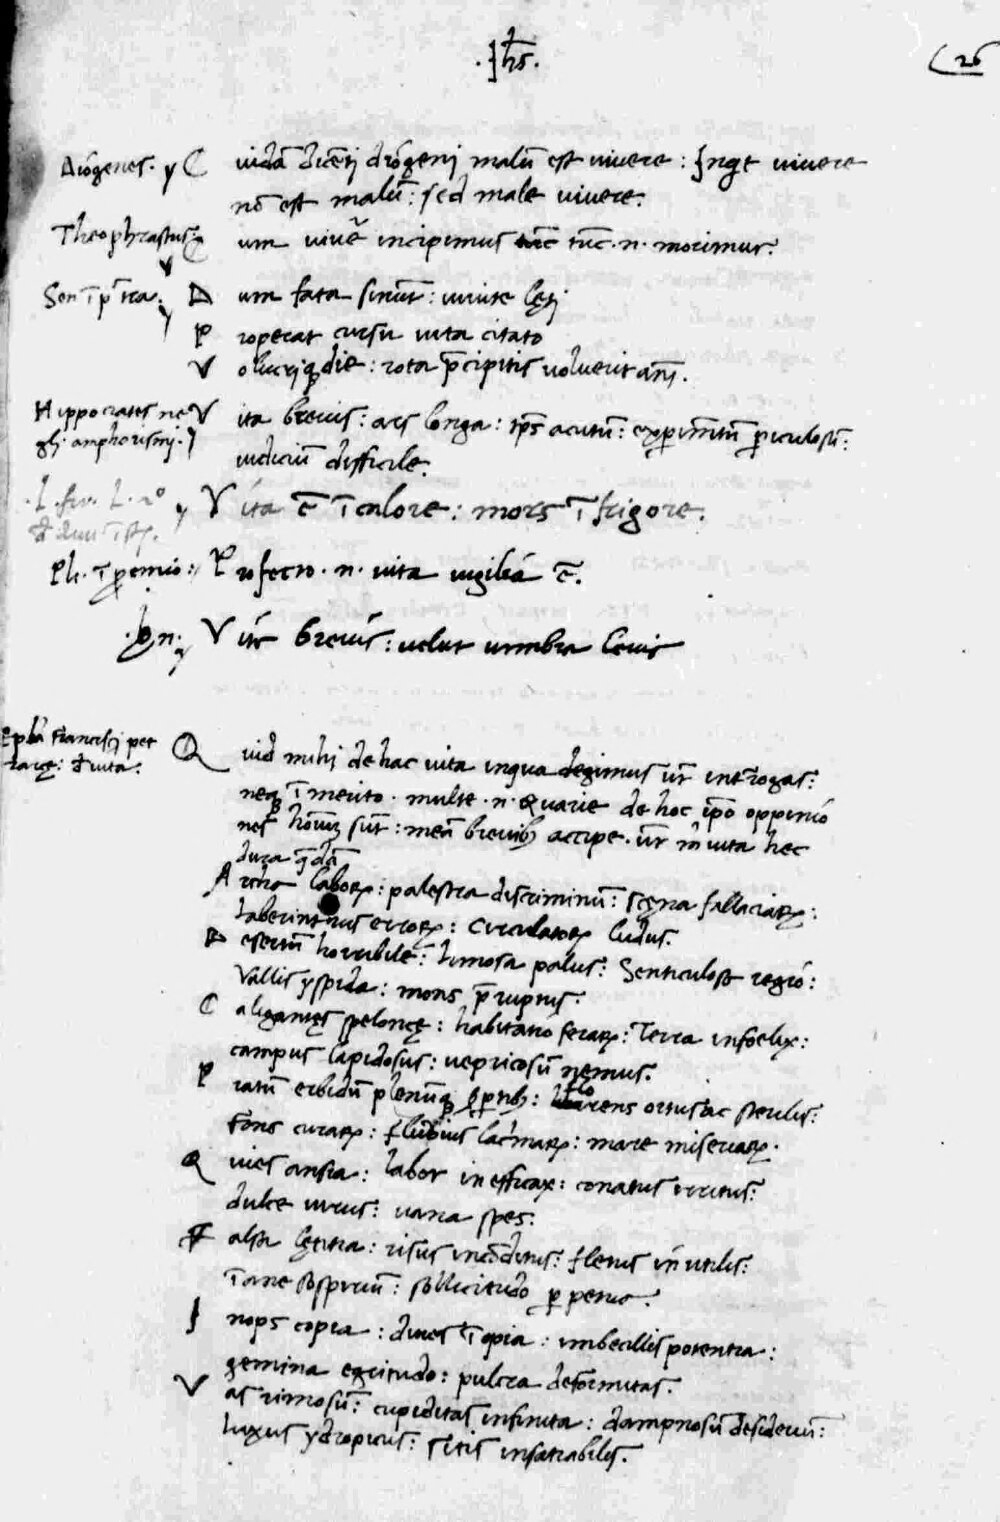 .Jhs.
26
Diógenes. y C uidã dicẽti diógeni malũ est uiuere : Inqt vivere
nõ est malũ : sed male vivere.
Theophrastus. C um viuẽ incipimus tũc .n. morimur.
Sen. ĩ tra. y D um fata sinũt : uiuite lęti
P roperat cursu uita citato
V olucriq die : rota p̃cipitis voluerit ãni.
Hippocrates ne V ita breuis : ars longa : tp̃s acutũ : experimẽtũ periculosũ :
gli amphorismi. y iudiciũ difficile.
y V ita ẽ ĩ calore : mors ĩ frigore.
Pli. ĩ p̱emio : P rofecto .n. uita uigilia ẽ.
y V ite breuis : velut umbra leuis
Francisci pet
rarcę : d uita : Q uid mihi de hac uita in qua degimus ur̃ interrogas :
neq ĩmerito . multe .n. & varie de hoc ip̃o oppinió
nes hoĩuȝ sũt : meã breuibȝ accipe . ur̃ m̃ uita hec
dura q̃dã
A rcha laborꝝ : palestra discriminũ : scęna fallaciarꝝ :
laberinthus errorꝝ : circulatorꝝ ludus.
D esertũ horribile : limosa palus : Senticulosa regió :
Vallis yspida : mons p̃ruptus :
C aligantęs speloncę : habitatio ferarꝝ : Terra infoelix :
campus lapidosus : uepricosũ nęmus.
P ratũ erbidũ plenũq serpẽtibȝ : florens ortus ac sterilis :
Fons curarꝝ : fluuius lacrimarꝝ : mare miseriarꝝ.
Q uies ansia : labor in efficax : conatus irritus :
dulce uirus : uana spes :
F alsa lętitia : risus incõditus : fletus inutilis :
ĩane sospiriũ : sollicitudo perpetua.
I nops copia : diues ĩopia : imbecillis potentia :
gemina egritudo : pulcra deformitas.
V as rimosũ : cupiditas infinita : dampnosũ desideriũ :
luxus ydropicus : sitis insatiabilis.